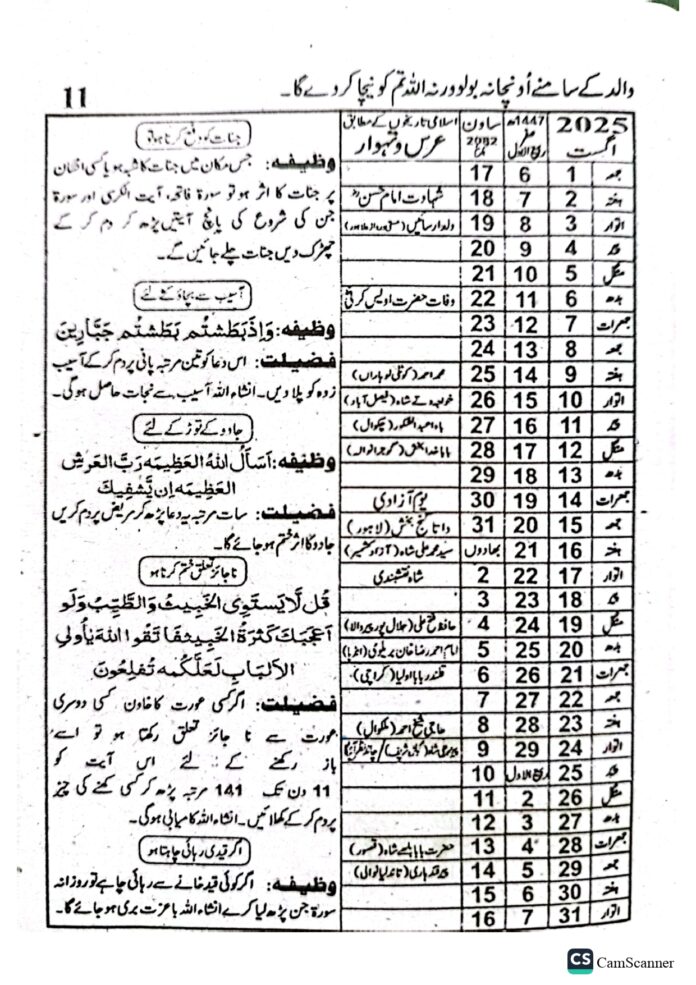 والد کے سامنے اُونچا نہ بولو ورنہ اللہ تم کو نیچا کر دے گا۔
11
2025
اگست
1447ھ
ربیع الاول
ساون
2082
اسلامی تاریخوں کے مطابق
عرس و تہوار
جمعہ 1 6 17
ہفتہ 2 7 18 شہادت امام حسنؓ
اتوار 3 8 19
4 9 20
منگل 5 10 21
بدھ 6 11 22 وفات حضرت اویس قرنیؓ
جمعرات 7 12 23
جمعہ 8 13 24
ہفتہ 9 14 25 محمد احمد (کوٹلی لوہاراں)
اتوار 10 15 26 (فیصل آباد)
11 16 27 (چکوال)
منگل 12 17 28 بابا خدا بخش (گوجرانوالہ)
بدھ 13 18 29
جمعرات 14 19 30 یوم آزادی
جمعہ 15 20 31 داتا گنج بخش (لاہور)
ہفتہ 16 21 بھادوں سید محمد علی شاہ (آزاد کشمیر)
اتوار 17 22 2 شاہ نقشبندی
18 23 3
منگل 19 24 4 حافظ فتح علی (جلال پور پیروالا)
بدھ 20 25 5 امام احمد رضا خان بریلوی (انڈیا)
جمعرات 21 26 6 قلندر بابا اولیا (کراچی)
جمعہ 22 27 7
ہفتہ 23 28 8 حاجی شیخ احمد (ملکوال)
اتوار 24 29 9
25 ربیع الاول 10
منگل 26 2 11
بدھ 27 3 12
جمعرات 28 4 13 حضرت بابا بلھے شاہ (قصور)
جمعہ 29 5 14 (تاندلیانوالی)
ہفتہ 30 6 15
اتوار 31 7 16
جنات کو دفع کرنا ہو تو
وظیفہ: جس مکان میں جنات کا شبہ ہو یا کسی انسان
پر جنات کا اثر ہو تو سورۃ فاتحہ، آیت الکرسی اور سورۃ
جن کی شروع کی پانچ آیتیں پڑھ کر دم کر کے
چھڑک دیں جنات چلے جائیں گے۔
آسیب سے بچاؤ کے لئے
وظیفہ: وَاِذَ بَطَشْتُم بَطَشْتُم جَبَّارِینَ
فضیلت: اس دعا کو تین مرتبہ پانی پر دم کر کے آسیب
زدہ کو پلا دیں۔ انشاء اللہ آسیب سے نجات حاصل ہو گی۔
جادو کے توڑ کے لئے
وظیفہ: اَسْأَلُ اللهُ الْعَظِیمَه رَبَّ الْعَرْشِ
الْعَظِیمَه اِن یَّشْفِیكَ
فضیلت: سات مرتبہ یہ دعا پڑھ کر مریض پر دم کریں
جادو کا اثر ختم ہو جائے گا۔
ناجائز تعلق ختم کرنا ہو
قُل لَا یَسْتَوِی الخَبِیثُ وَالطَّیِّبُ وَلَو
اَعْجَبَكَ كَثْرَةُ الْخَبِیثِ فَا تَّقُوا اللهَ یَأُولِی
الاَلْبَابِ لَعَلَّكُمه تُفْلِحُونَ
فضیلت: اگر کسی عورت کا خاون کسی دوسری
عورت سے نا جائز تعلق رکھتا ہو تو اسے
باز رکھنے کے لئے اس آیت کو
11 دن تک 141 مرتبہ پڑھ کر کسی کھنے کی چیز
پر دم کر کے کھلائیں۔ انشاء اللہ کامیابی ہو گی۔
اگر قیدی رہائی چاہتا ہو
وظیفہ: اگر کوئی قید خانے سے رہائی چاہے تو روزانہ
سورۃ جن پڑھ لیا کرے انشاء اللہ باعزت بری ہو جائے گا۔
CS CamScanner